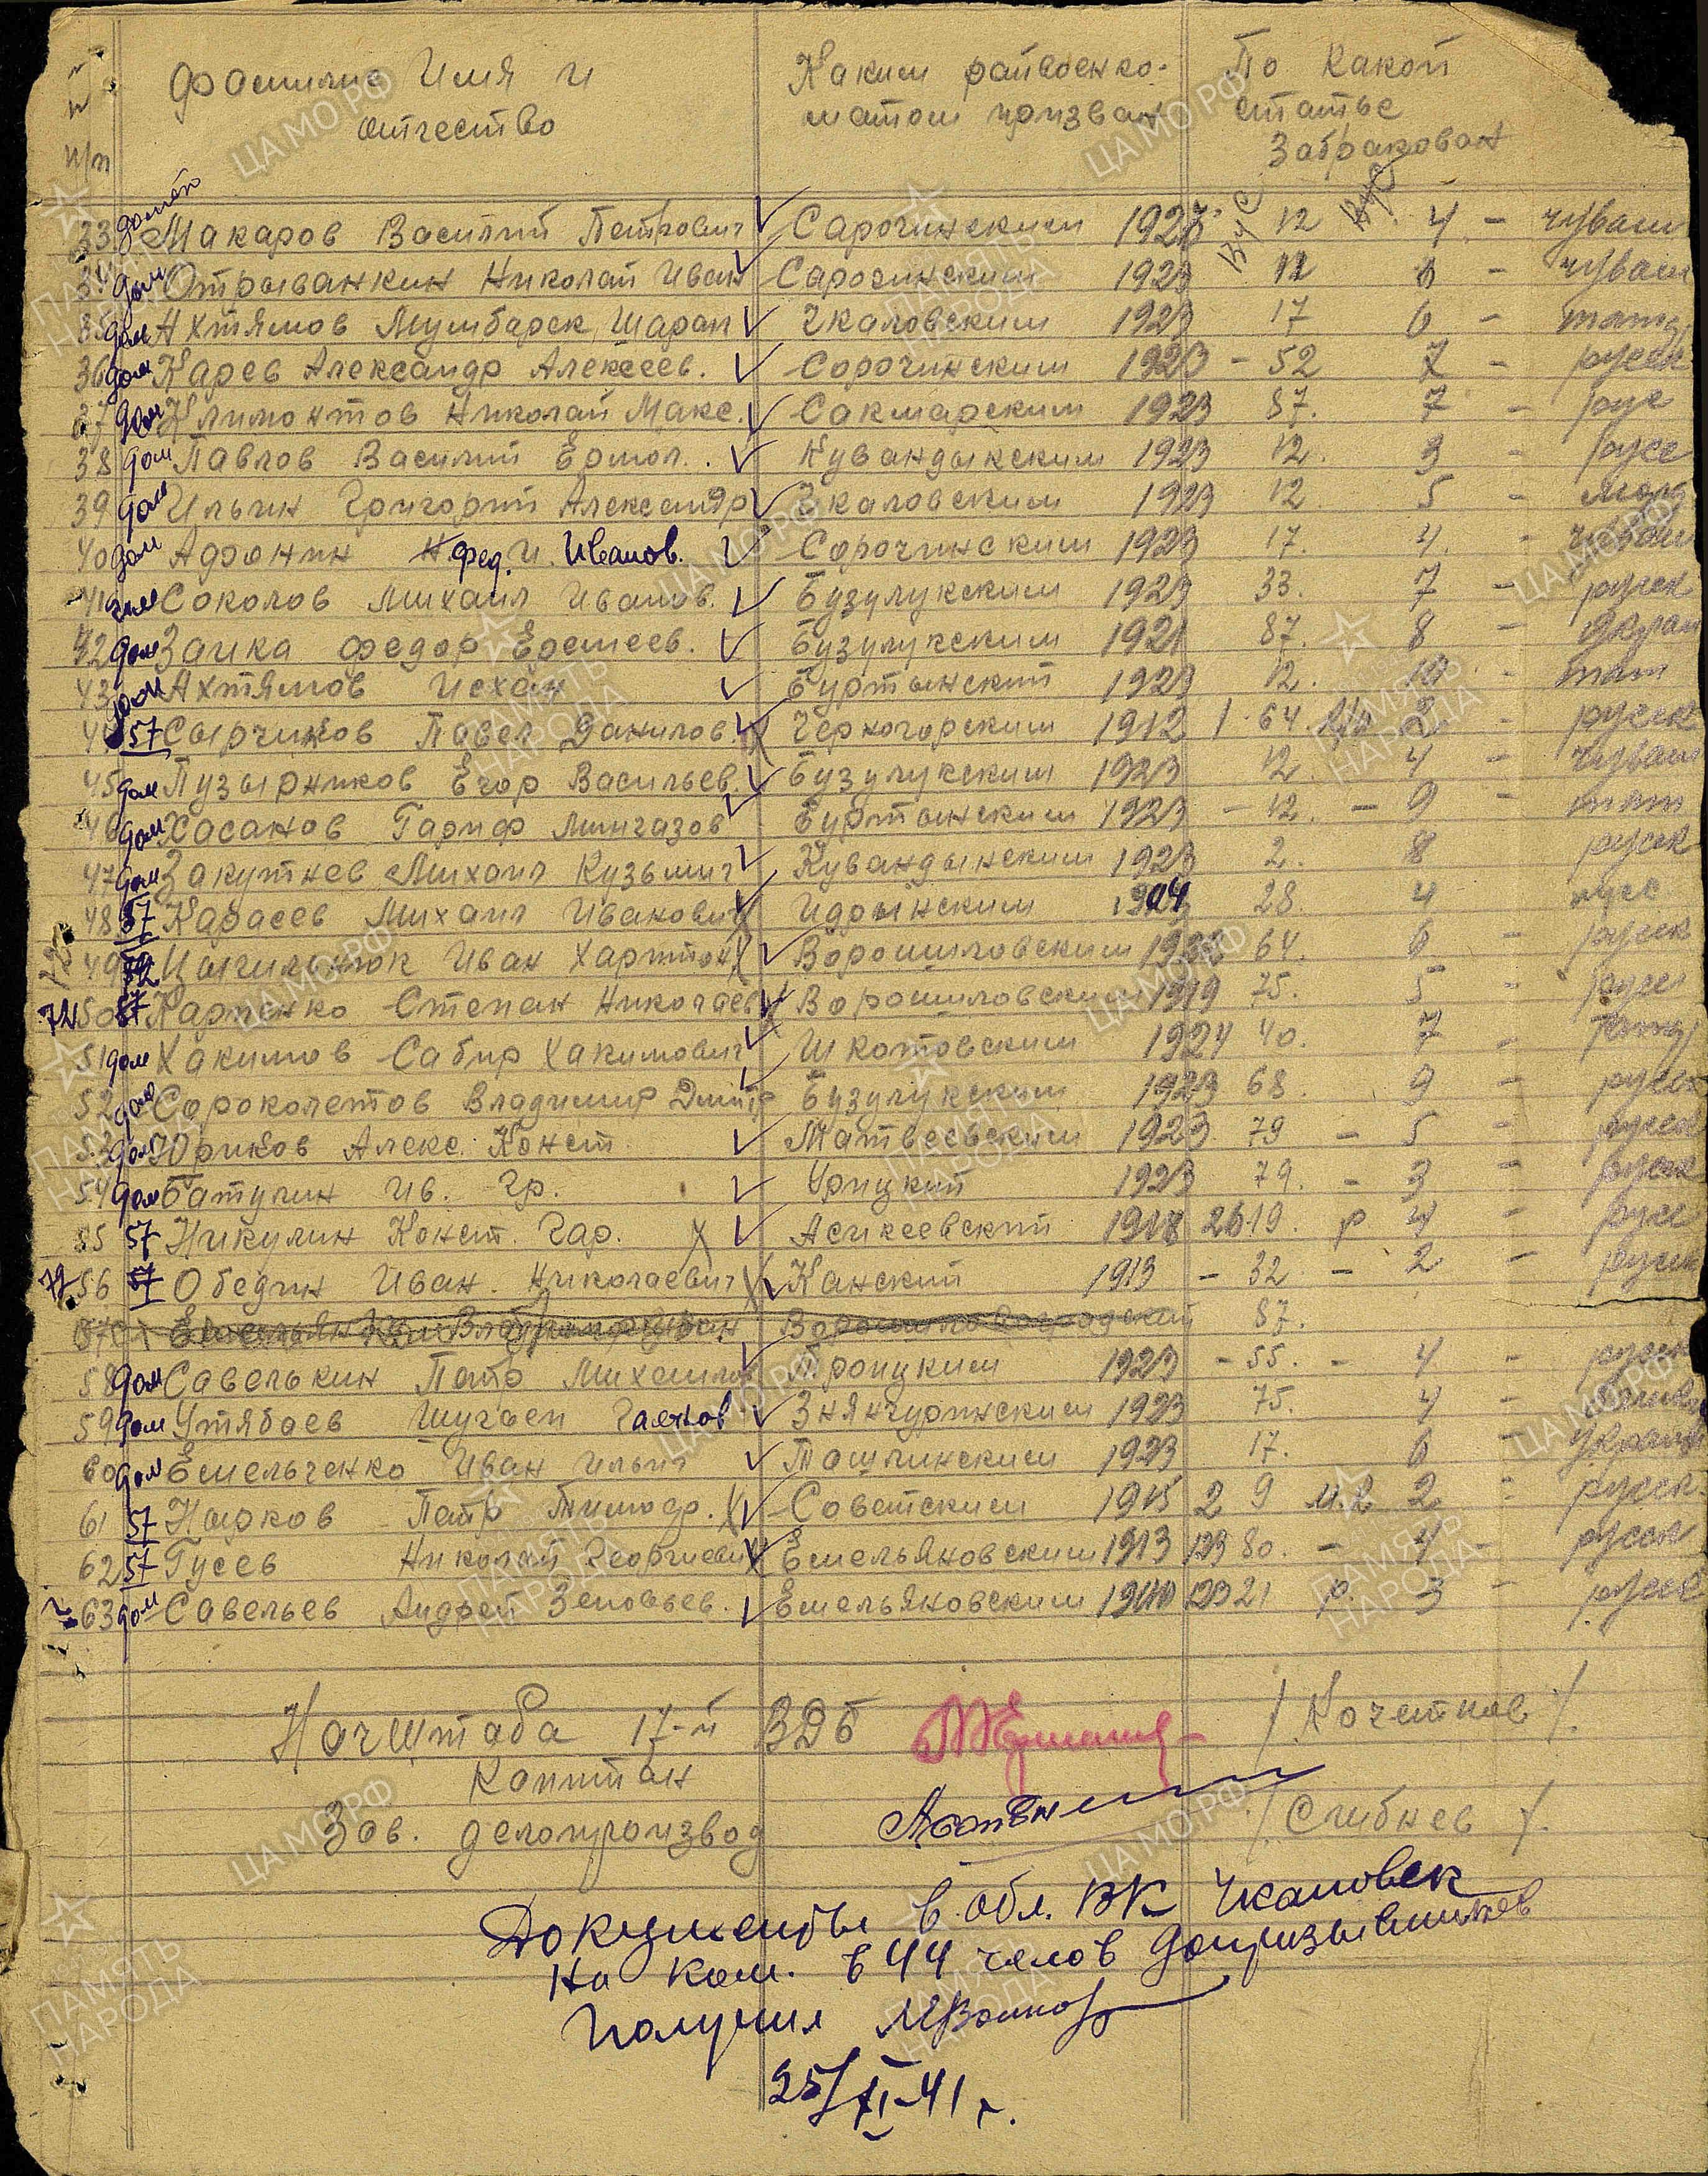 п/п Фамилие Имя и отчество Каким райвоенкоматом призван По какой статье Забракован
33 домой Макаров Василий Петрович Сарочинским 1923 12 4 - чуваш
34 дом Отрыванкин Николай Иван Сарочинским 1923 12 6 - чуваш
35 дом Ахтямов Мумбарек Шарап Чкаловским 1923 17 6 - татар
36 дом Карев Александр Алексеев. Сорочинским 1923 - 52 7 - русск
37 дом Климонтов Николай Макс. Сакмарским 1923 87. 7 - рус
38 дом Павлов Василий Ермол. Кувандыкским 1923 12. 3 - русс
39 дом Ильин Григорий Александр Чкаловским 1923 12 5 - морд
40 дом Афонин Фед. И. Иванов. Сорочинским 1923 17. 4. - чуваш
41 Соколов Михаил Иванов. Бузулукским 1923 33. 7 - русск
42 дом Заика Федор Еремеев. Бузулукским 1921 87. 8 - украин
43 дом Ахтямов Исхан Буртынский 1923 12. 10 - тат
44 57 Сырчиков Павел Данилов Черногорским 1912 1 64 2 - русск
45 дом Пузырников Егор Васильев. Бузулукским 1923 12 4 - чуваш
46 дом Хасанов Гариф Мингазов Буртынским 1923 - 12. - 9 - тат
47 дом Закутнев Михаил Кузьмич Кувандыкским 1923 2. 8 русск
48 57 Карасев Михаил Иванович Идрынским 1904 28. 4 русс
49 72 Иван Харитон Ворошиловским 64. 6 - русск
72 50 57 Карпенко Степан Николаев Ворошиловским 1919 75. 5 - русск
51 дом Хакимов Сабир Хакимович Шкотовским 1924 40. 7 - татар
52 дом Сороколетов Владимир Дмитр Бузулукским 1923 68 9 - русск
53 дом Юриков Алекс. Конст. Матвеевским 1923. 79 - 5 - русск
54 дом Батулин Ив. Гр. Урицкий 1923 79. - 3 - русск
55 57 Никулин Конст. Гар. Асикеевский 1918 26 19. р 4 - русс
72 56 57 Обедин Иван Николаевич Канский 1913 - 32 - 2 - русск
57 87.
58 дом Савелькин Петр Михайлов Троицким 1923 - 55. - 4 - русск
59 дом Утябаев Шугаеп Гаянов Зиянчуринским 1923 75. 4 -
60 дом Емельченко Иван Ильич Ташлинским 1923 17. 6 - украин
61 57 Нырков Петр Тимофр. Советским 1915 2 9 2 - русск
62 57 Гусев Николай Георгиевич Емельяновским 1913 123 80. - 4 - русск
63 дом Савельев Андрей Зеновьев. Емельяновским 21 р. 3 - русск
Начштаба 17-й ВДБ / Кочетков /.
Капитан
Зав. делопроизвод / Слибнев /.
Документы в обл. ВК Чкаловск
на кол. в 44 челов допризывников
Получил
25/XI-41 г.
ЦА МО РФ
ПАМЯТЬ НАРОДА